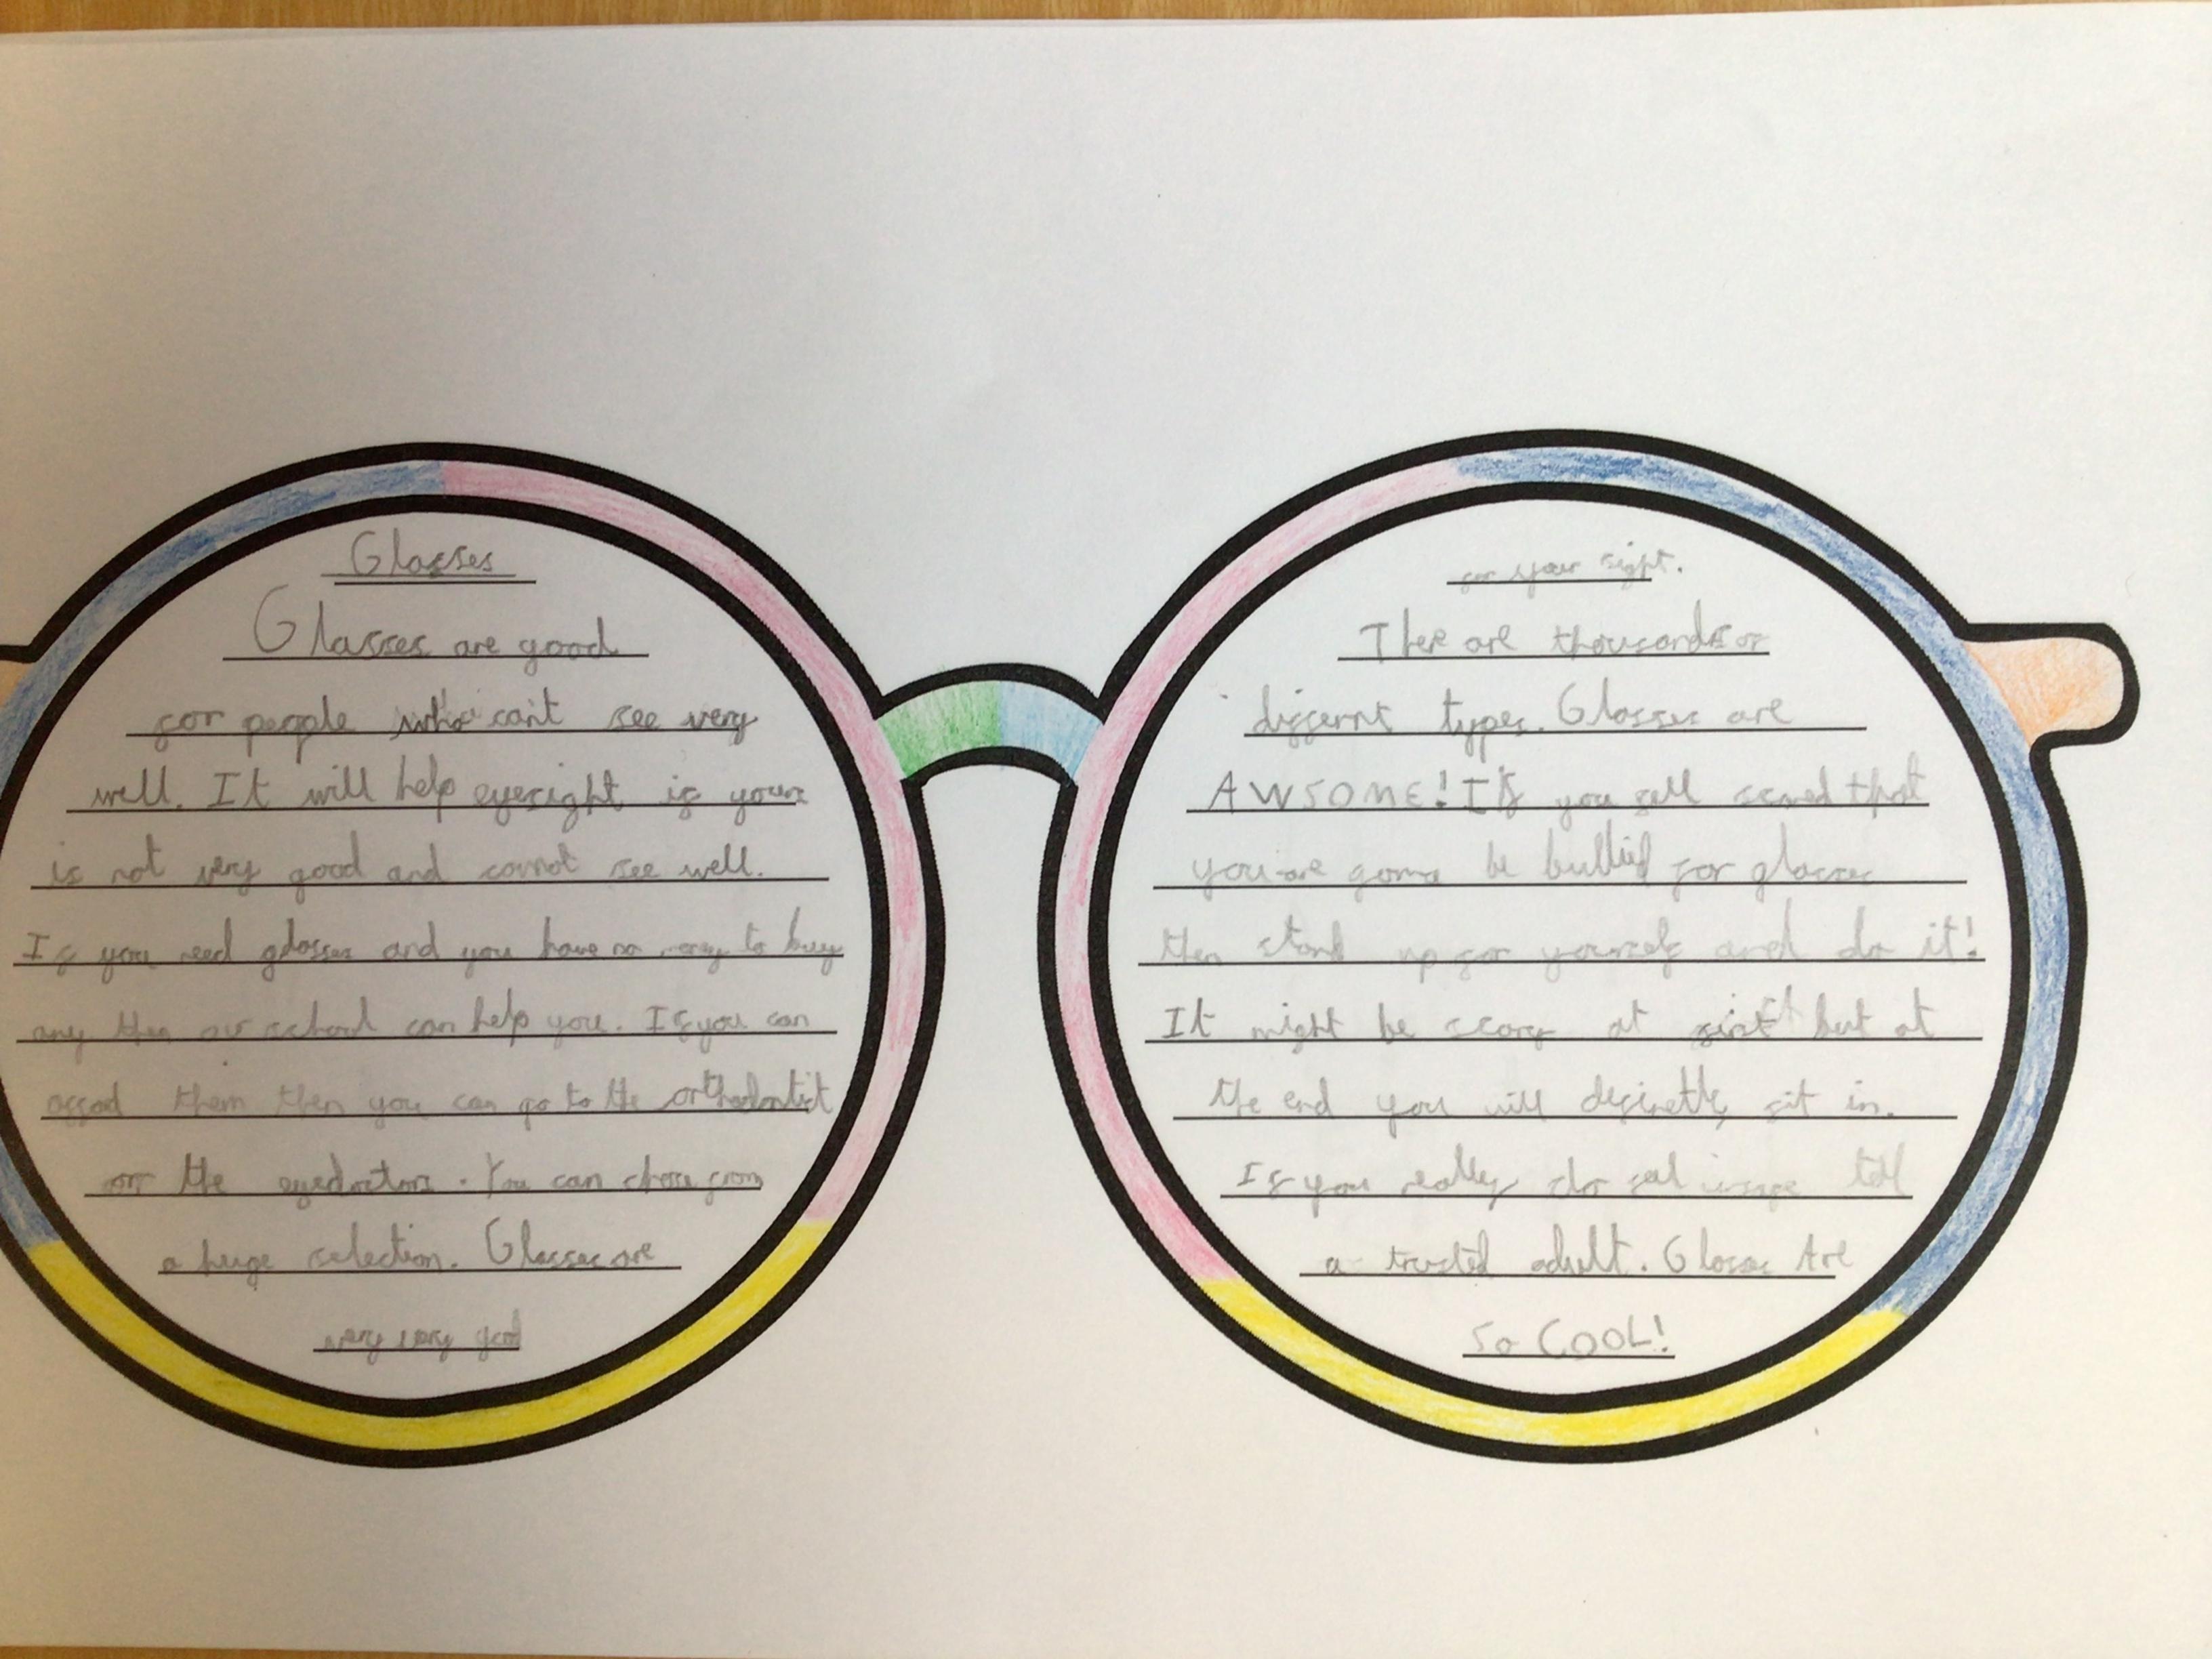 Glasses
Glasses are good
for people who can't see very
well. It will help eyesight if yours
is not very good and cannot see well.
If you need glasses and you have no money to buy
any then our school can help you. If you can
afford them then you can go to the orthodontist
or the eyedoctors. You can chose from
a huge selection. Glasses are
very very good
for your sight.
There are thousands of
differnt types. Glasses are
AWSOME! If you fell scared that
you are gonna be bullied for glasses
then stand up for yourself and do it!
It might be scary at first but at
the end you will definetly fit in.
If you really do fel tell
a trusted adult. Glasses Are
So COOL!